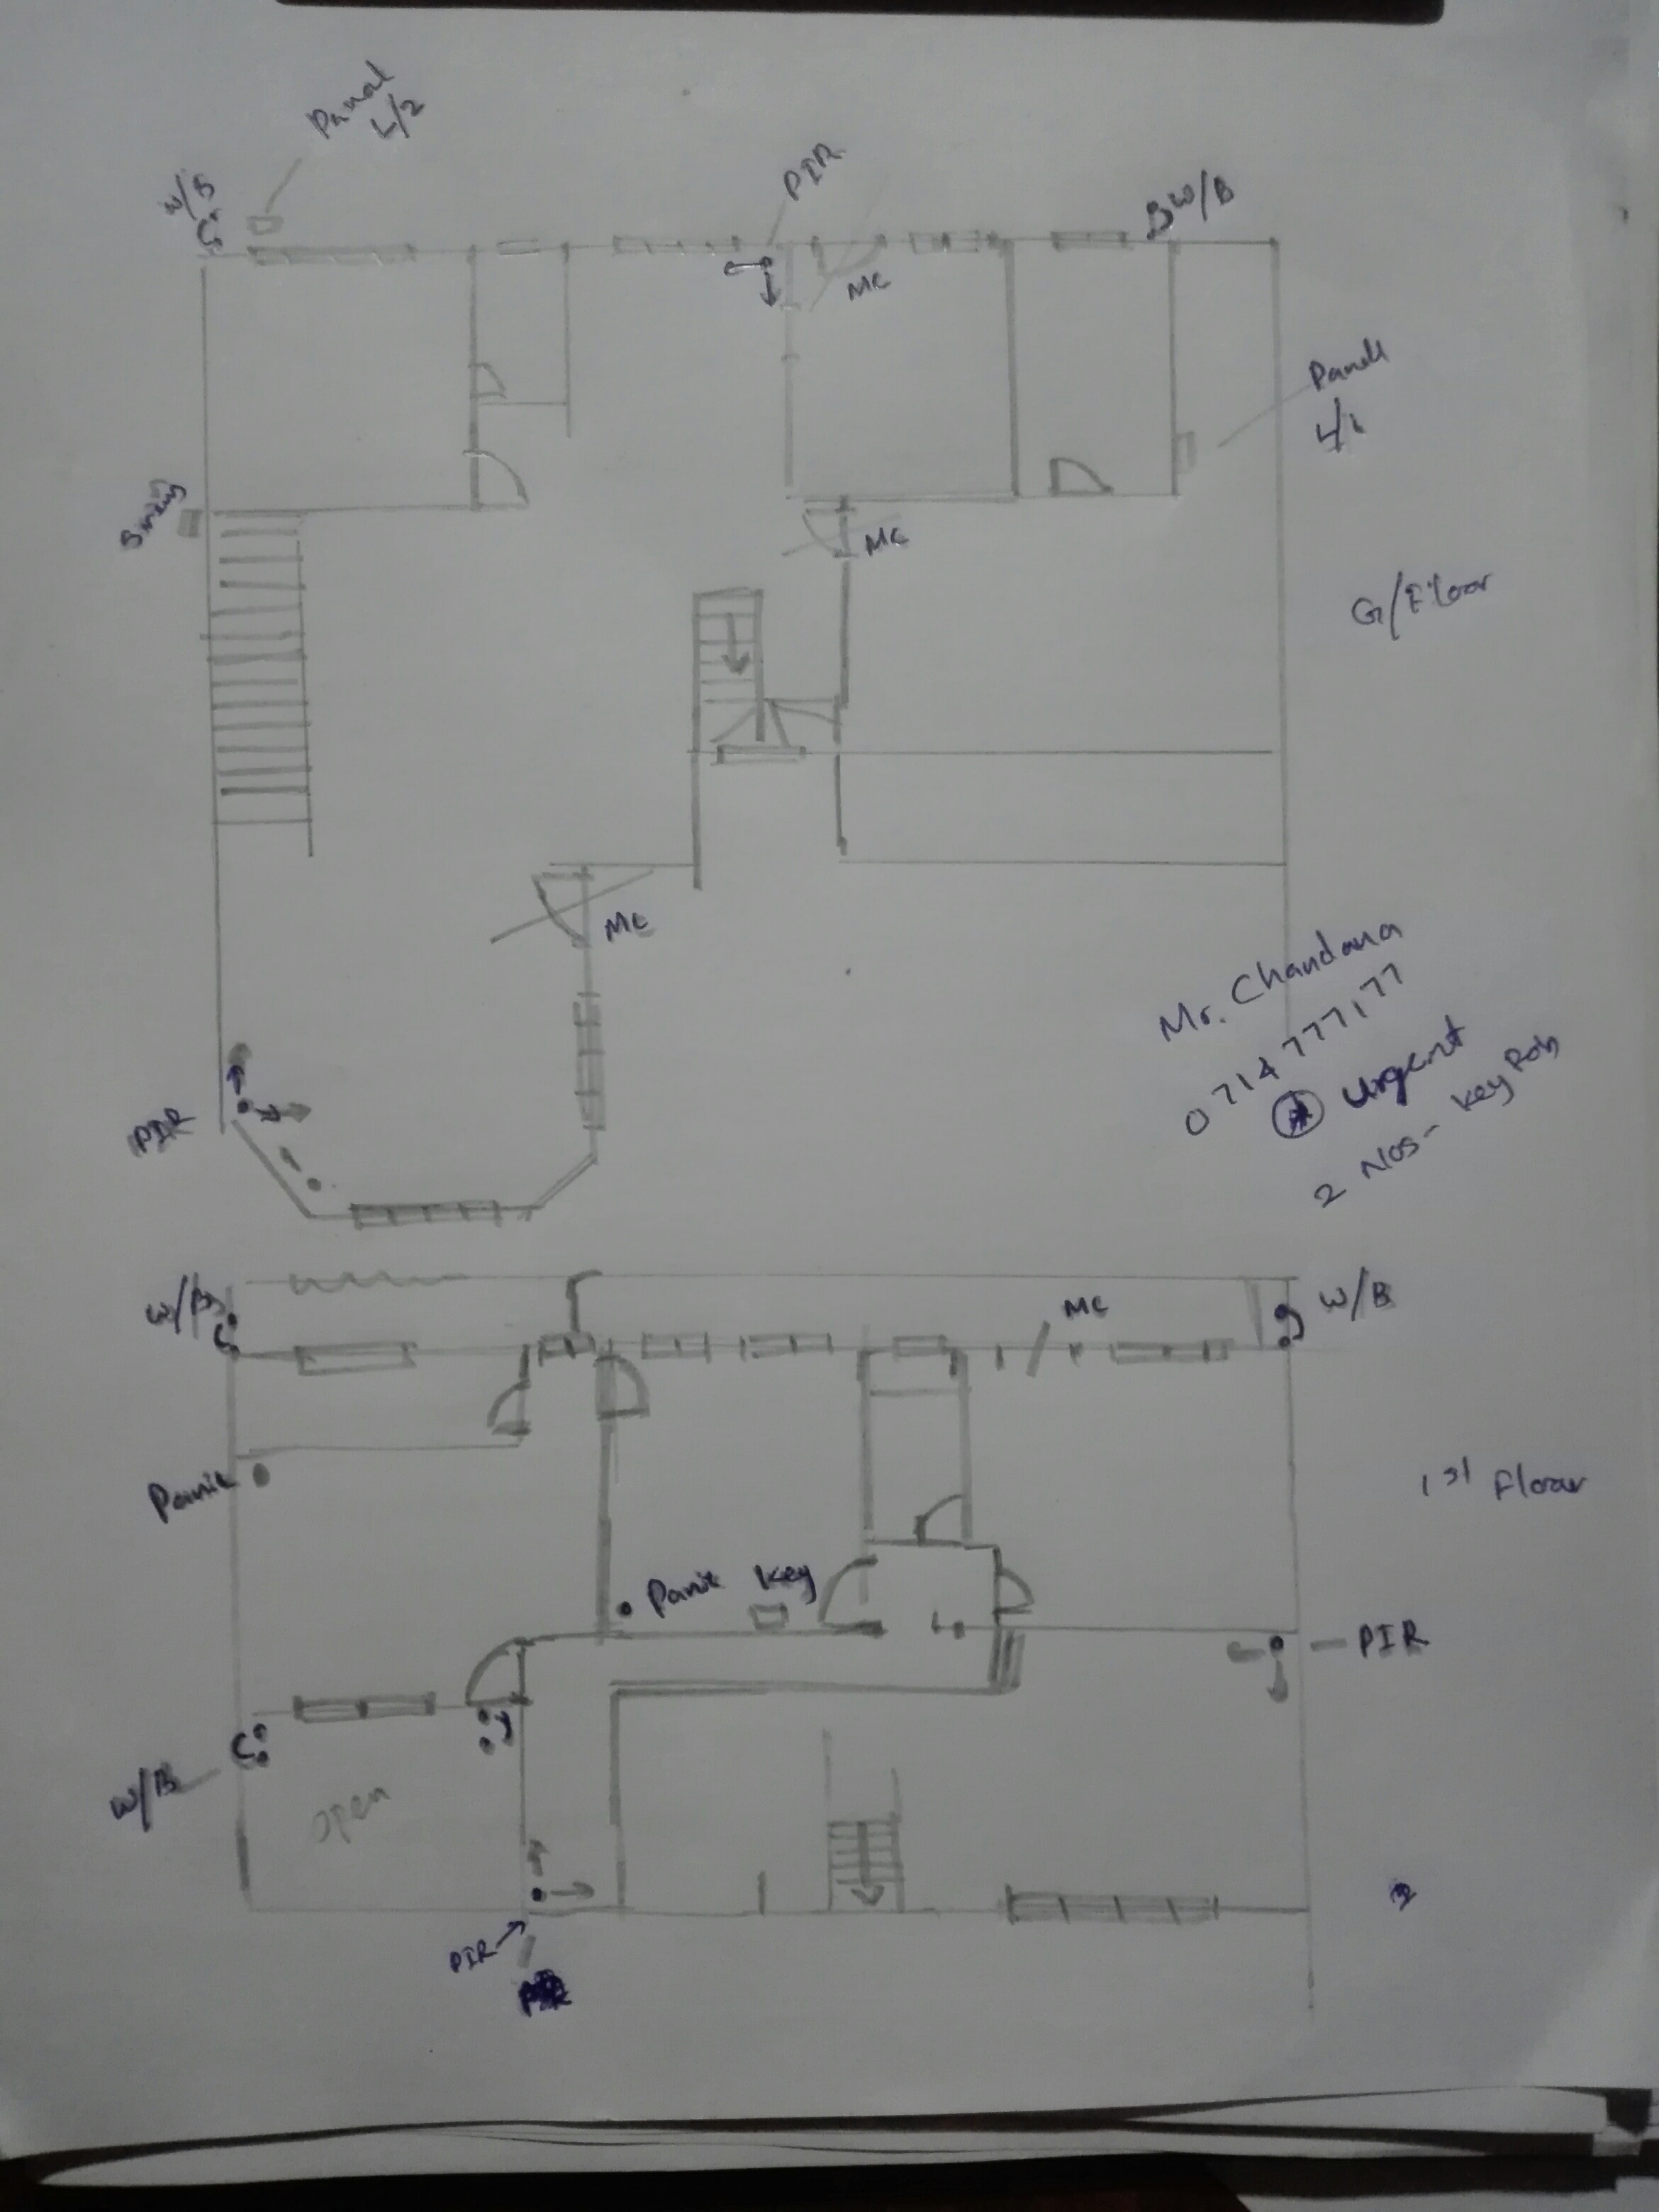 Panal
L/2
W/B
PIR
W/B
MC
Panall
MC
G/Floor
MC
Mr. Chandana
0714777177
Urgent
2 Nos- Key Fob
PIR
W/B
MC
W/B
Panic
1st Floor
Panic Key
PIR
W/B
open
PIR